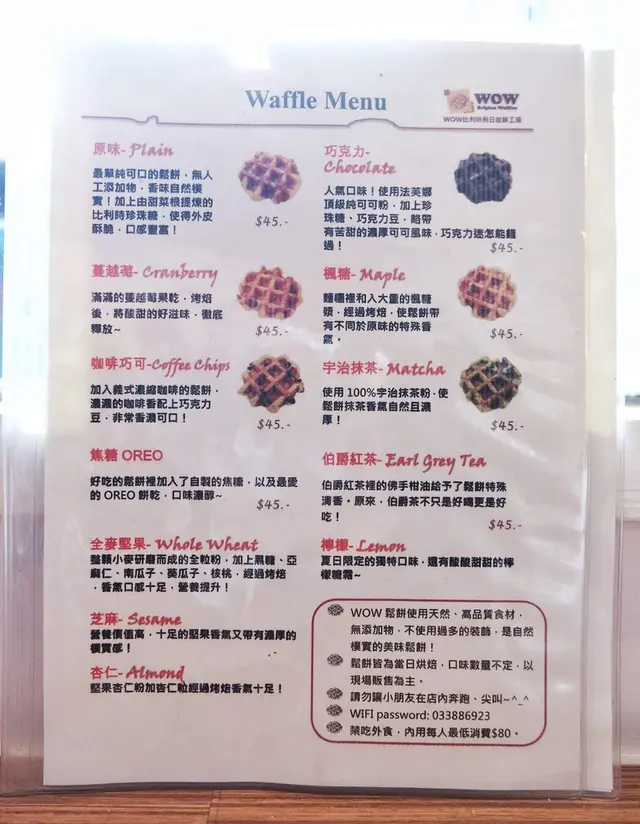 Waffle Menu
WOW
Belgian Waffles
WOW比利時列日鬆餅工房
原味- Plain
最單純可口的鬆餅，無人
工添加物，香味自然樸
實！加上由甜菜根提煉的
比利時珍珠糖，使得外皮
酥脆，口感豐富！
$45.-
巧克力-
Chocolate
人氣口味！使用法芙娜
頂級純可可粉，加上珍
珠糖、巧克力豆，略帶
有苦甜的濃厚可可風味，巧克力迷怎能錯
過！
$45.-
蔓越莓- Cranberry
滿滿的蔓越莓果乾，烤焙
後，將酸甜的好滋味，徹底
釋放~
$45.-
楓糖- Maple
麵糰裡和入大量的楓糖
漿，經過烤焙，使鬆餅帶
有不同於原味的特殊香
氣。
$45.-
咖啡巧可-Coffee Chips
加入義式濃縮咖啡的鬆餅，
濃濃的咖啡香配上巧克力
豆，非常香濃可口！
$45.-
宇治抹茶- Matcha
使用 100%宇治抹茶粉，使
鬆餅抹茶香氣自然且濃
厚！
$45.-
焦糖 OREO
好吃的鬆餅裡加入了自製的焦糖，以及最愛
的 OREO 餅乾，口味濃醇~
$45.-
伯爵紅茶- Earl Grey Tea
伯爵紅茶裡的佛手柑油給予了鬆餅特殊
清香。原來，伯爵茶不只是好喝更是好
吃！
$45.-
全麥堅果- Whole Wheat
整顆小麥研磨而成的全粒粉，加上黑糖、亞
麻仁、南瓜子、葵瓜子、核桃，經過烤焙
，香氣口感十足，營養提升！
檸檬- Lemon
夏日限定的獨特口味，還有酸酸甜甜的檸
檬糖霜~
芝麻- Sesame
營養價值高，十足的堅果香氣又帶有濃厚的
樸實感！
杏仁- Almond
堅果杏仁粉加杏仁粒經過烤焙香氣十足！
WOW 鬆餅使用天然、高品質食材，
無添加物，不使用過多的裝飾，是自然
樸實的美味鬆餅！
鬆餅皆為當日烘焙，口味數量不定，以
現場販售為主。
請勿讓小朋友在店內奔跑、尖叫~^_^
WIFI password: 033886923
禁吃外食，內用每人最低消費$80。